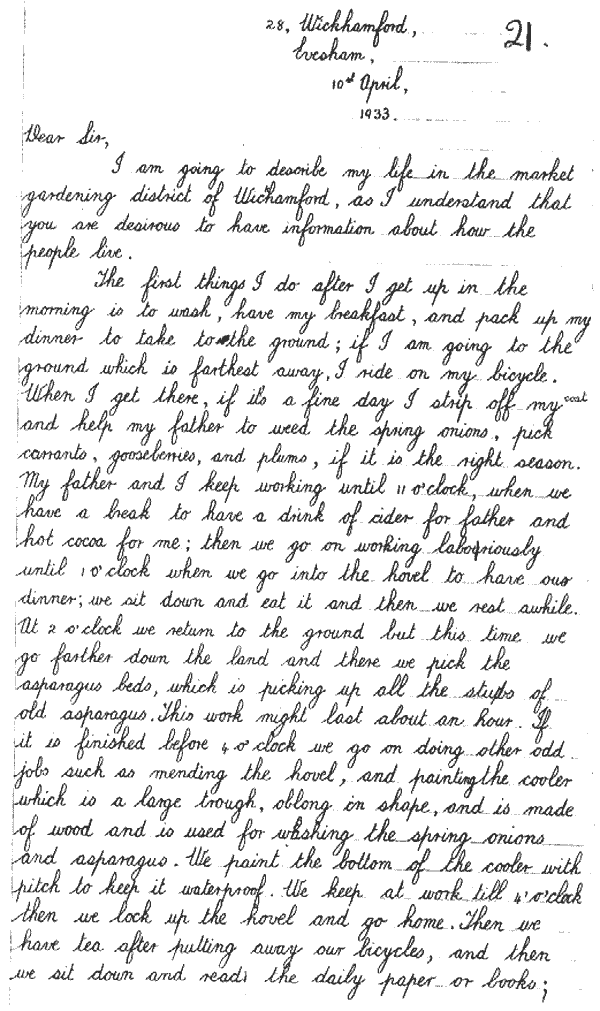 28, Wickhamford,
21.
Evesham,
10th April,
1933.
Dear Sir,
I am going to describe my life in the market
gardening district of Wickhamford, as I understand that
you are desirous to have information about how the
people live.
The first things I do after I get up in the
morning is to wash, have my breakfast, and pack up my
dinner to take to the ground; if I am going to the
ground which is farthest away, I ride on my bicycle.
When I get there, if it's a fine day I strip off my coat
and help my father to weed the spring onions, pick
currants, gooseberries, and plums, if it is the right season.
My father and I keep working until 11 o'clock, when we
have a break to have a drink of cider for father and
hot cocoa for me; then we go on working laboriously
until 1 o'clock when we go into the hovel to have our
dinner; we sit down and eat it and then we rest awhile.
At 2 o'clock we return to the ground but this time we
go farther down the land and there we pick the
asparagus beds, which is picking up all the stubs of
old asparagus. This work might last about an hour. If
it is finished before 4 o'clock we go on doing other odd
jobs such as mending the hovel, and painting the cooler
which is a large trough, oblong in shape, and is made
of wood and is used for washing the spring onions
and asparagus. We paint the bottom of the cooler with
pitch to keep it waterproof. We keep at work till 4 o'clock
then we lock up the hovel and go home. Then we
have tea after putting away our bicycles, and then
we sit down and read the daily paper or books;